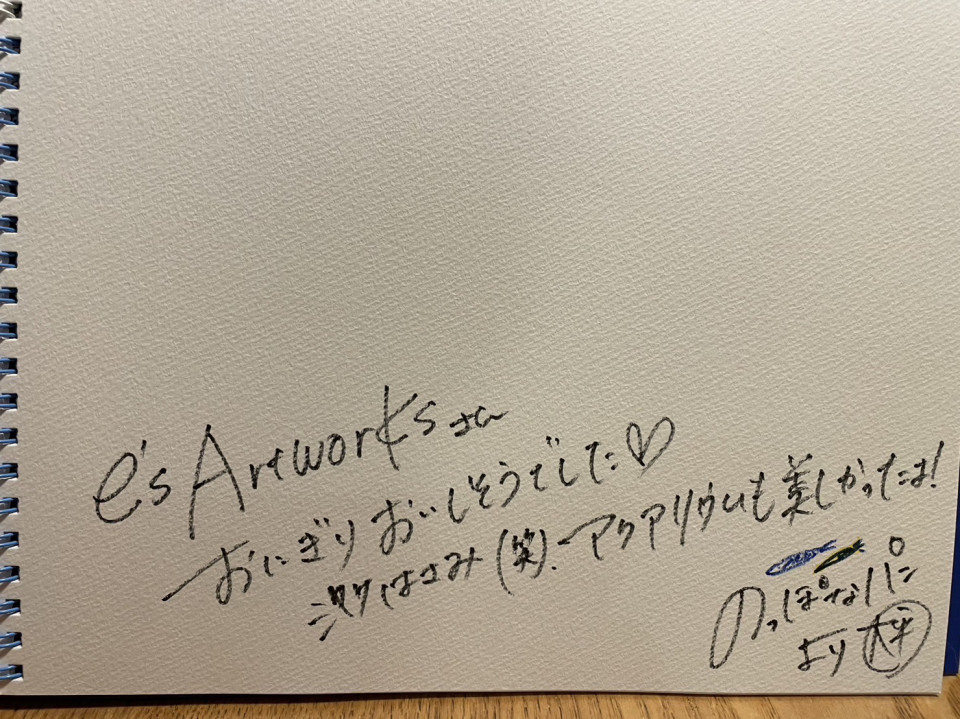 e's Artworksさん
おにぎりおいしそうでした♡
はさみ(笑).アクアリウムも美しかったは!
のっぽなし
より